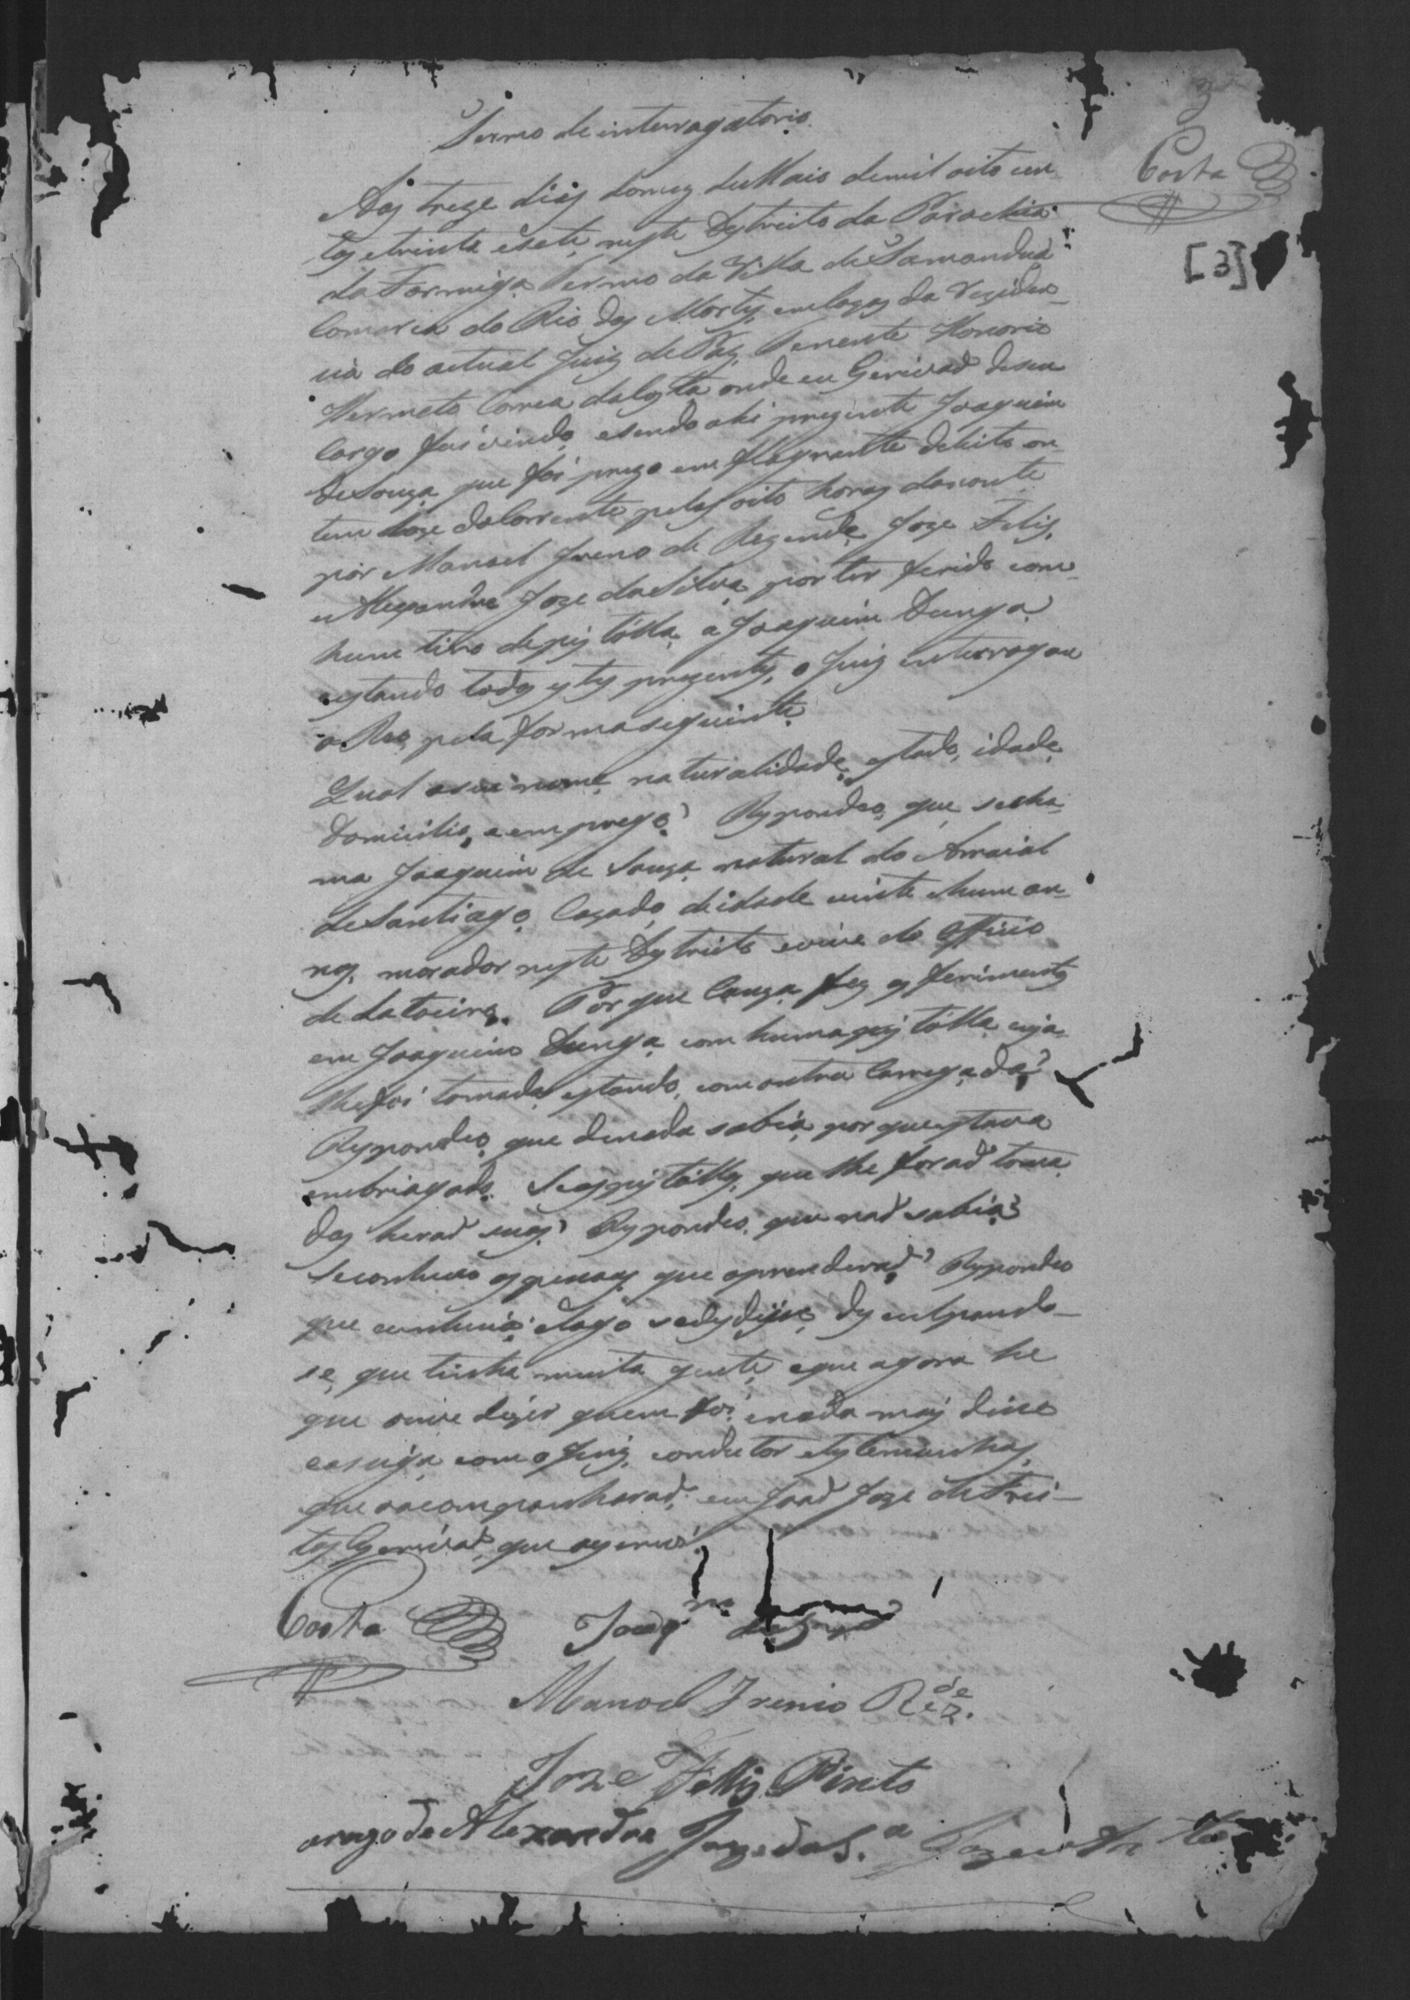 3
Costa
[3]
Termo de interrogatorio
Aos treze dias do mez de Maio de mil oito cen
tos e trinta e sete, neste Destricto da Parochia
da Formiga Termo da Villa de Tamanduá
Comarca do Rio das Mortes em Cazas da Reziden-
cia do actual Juiz de Paz Tenente Honorio
Hermeto Correa da Costa onde eu Escrivaõ de seu
Cargo fui vindo, e sendo ahi prezente Joaquim
de Souza que foi prezo em flagrante delicto on
tem doze do Corrente pelas oito horas da noute
por Manoel Ireno de Rezende, Joze Felis,
e Alexandre Joze da Silva por ter ferido com
hum tiro de pistolla a Joaquim Dunga,
estando todos estes prezentes, o Juiz interrogou
o Reo, pela forma seguinte
Qual o seu nome, naturalidade, estado, idade,
Domicilio, e emprego? Respondeo, que se cha-
ma Joaquim de Souza natural do Arraial
de Santiago, Cazado, de idade vinte e hum an-
nos, morador neste Destricto e vive do officio
de Latoeiro. Por que Cauza fez os ferimentos
em Joaquim Dunga com huma pistolla cuja
lhe foi tomada estando, com outra Carregada?
Respondeo, que de nada sabia por que estava
embriagado. Se as pistollas, que lhe foraõ toma
das heraõ suas? Respondeo, que naõ sabia?
Se conheceo as pessoas que o prenderaõ? Respondeo
que conhecia, e logo se desdisse, desculpando-
se, que tinha muita gente, e que agora he
que ouve dizer quem foi, e nada mais disse
e assigna com o Juiz, conductor e testemunhas,
que o acompanharaõ, eu Joaõ Joze de Frei-
tas Escrivaõ, que o escrevi.
Costa Joaq.m de Souza
Manoel Irenio R.de
Joze Fellis Pinto
arogo de Alexandre Joze da S.a